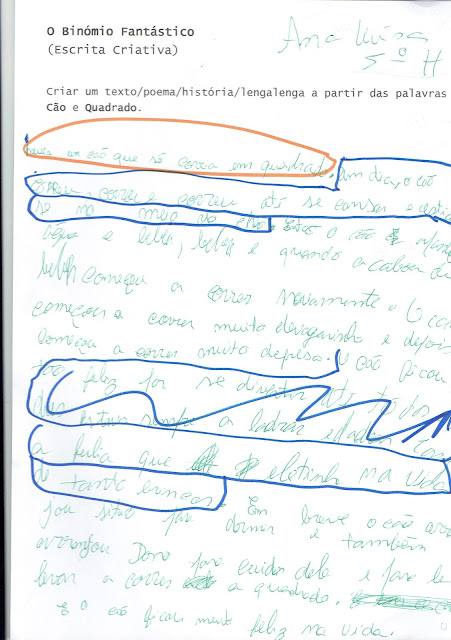 O Binómio Fantástico
(Escrita Criativa)
Ana Luísa
5º H
Criar um texto/poema/história/lengalenga a partir das palavras
Cão e Quadrado.
havia um cão que só corria em quadrado. Um dia, o cão
correu, correu e correu até se cansar e
se no meio
água e bebeu, bebeu e quando acabou de
beber começou a correr novamente. O
começou a correr muito devagarinho e depois
começou a correr muito depressa. O cão ficou
tão feliz por se divertir
sempre a ladrar
a folia que ele tinha na vida
de tanto brincar. Em breve o cão
sítio para dormir e também
arranjou Dono para cuidar dele e para le
levar a correr a quadrado.
E o cão ficou muito feliz na vida.